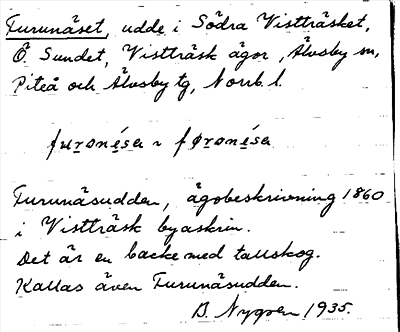 Furunäset, udde i Södra Vistträsket,
Ö Sundet, Vistträsk ägor, Älvsby sn,
Piteå och Älvsby tg, Norrb. l.
furonésa ~ føronésa
Furunäsudden, ägobeskrivning 1860
i Vistträsk byaskrin.
Det är en backe med tallskog.
Kallas även Furunäsudden.
B. Nygren 1935.